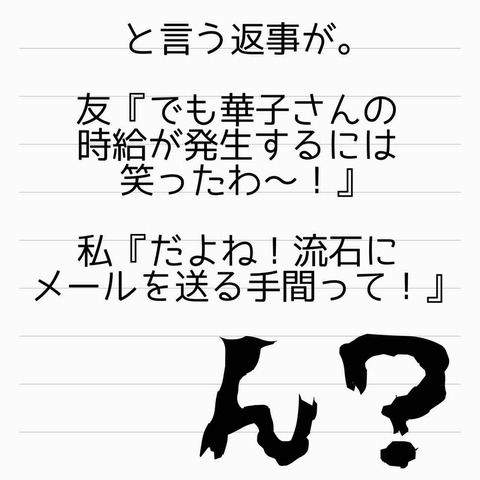 と言う返事が。
友『でも華子さんの
時給が発生するには
笑ったわ〜！』
私『だよね！流石に
メールを送る手間って！』
ん？